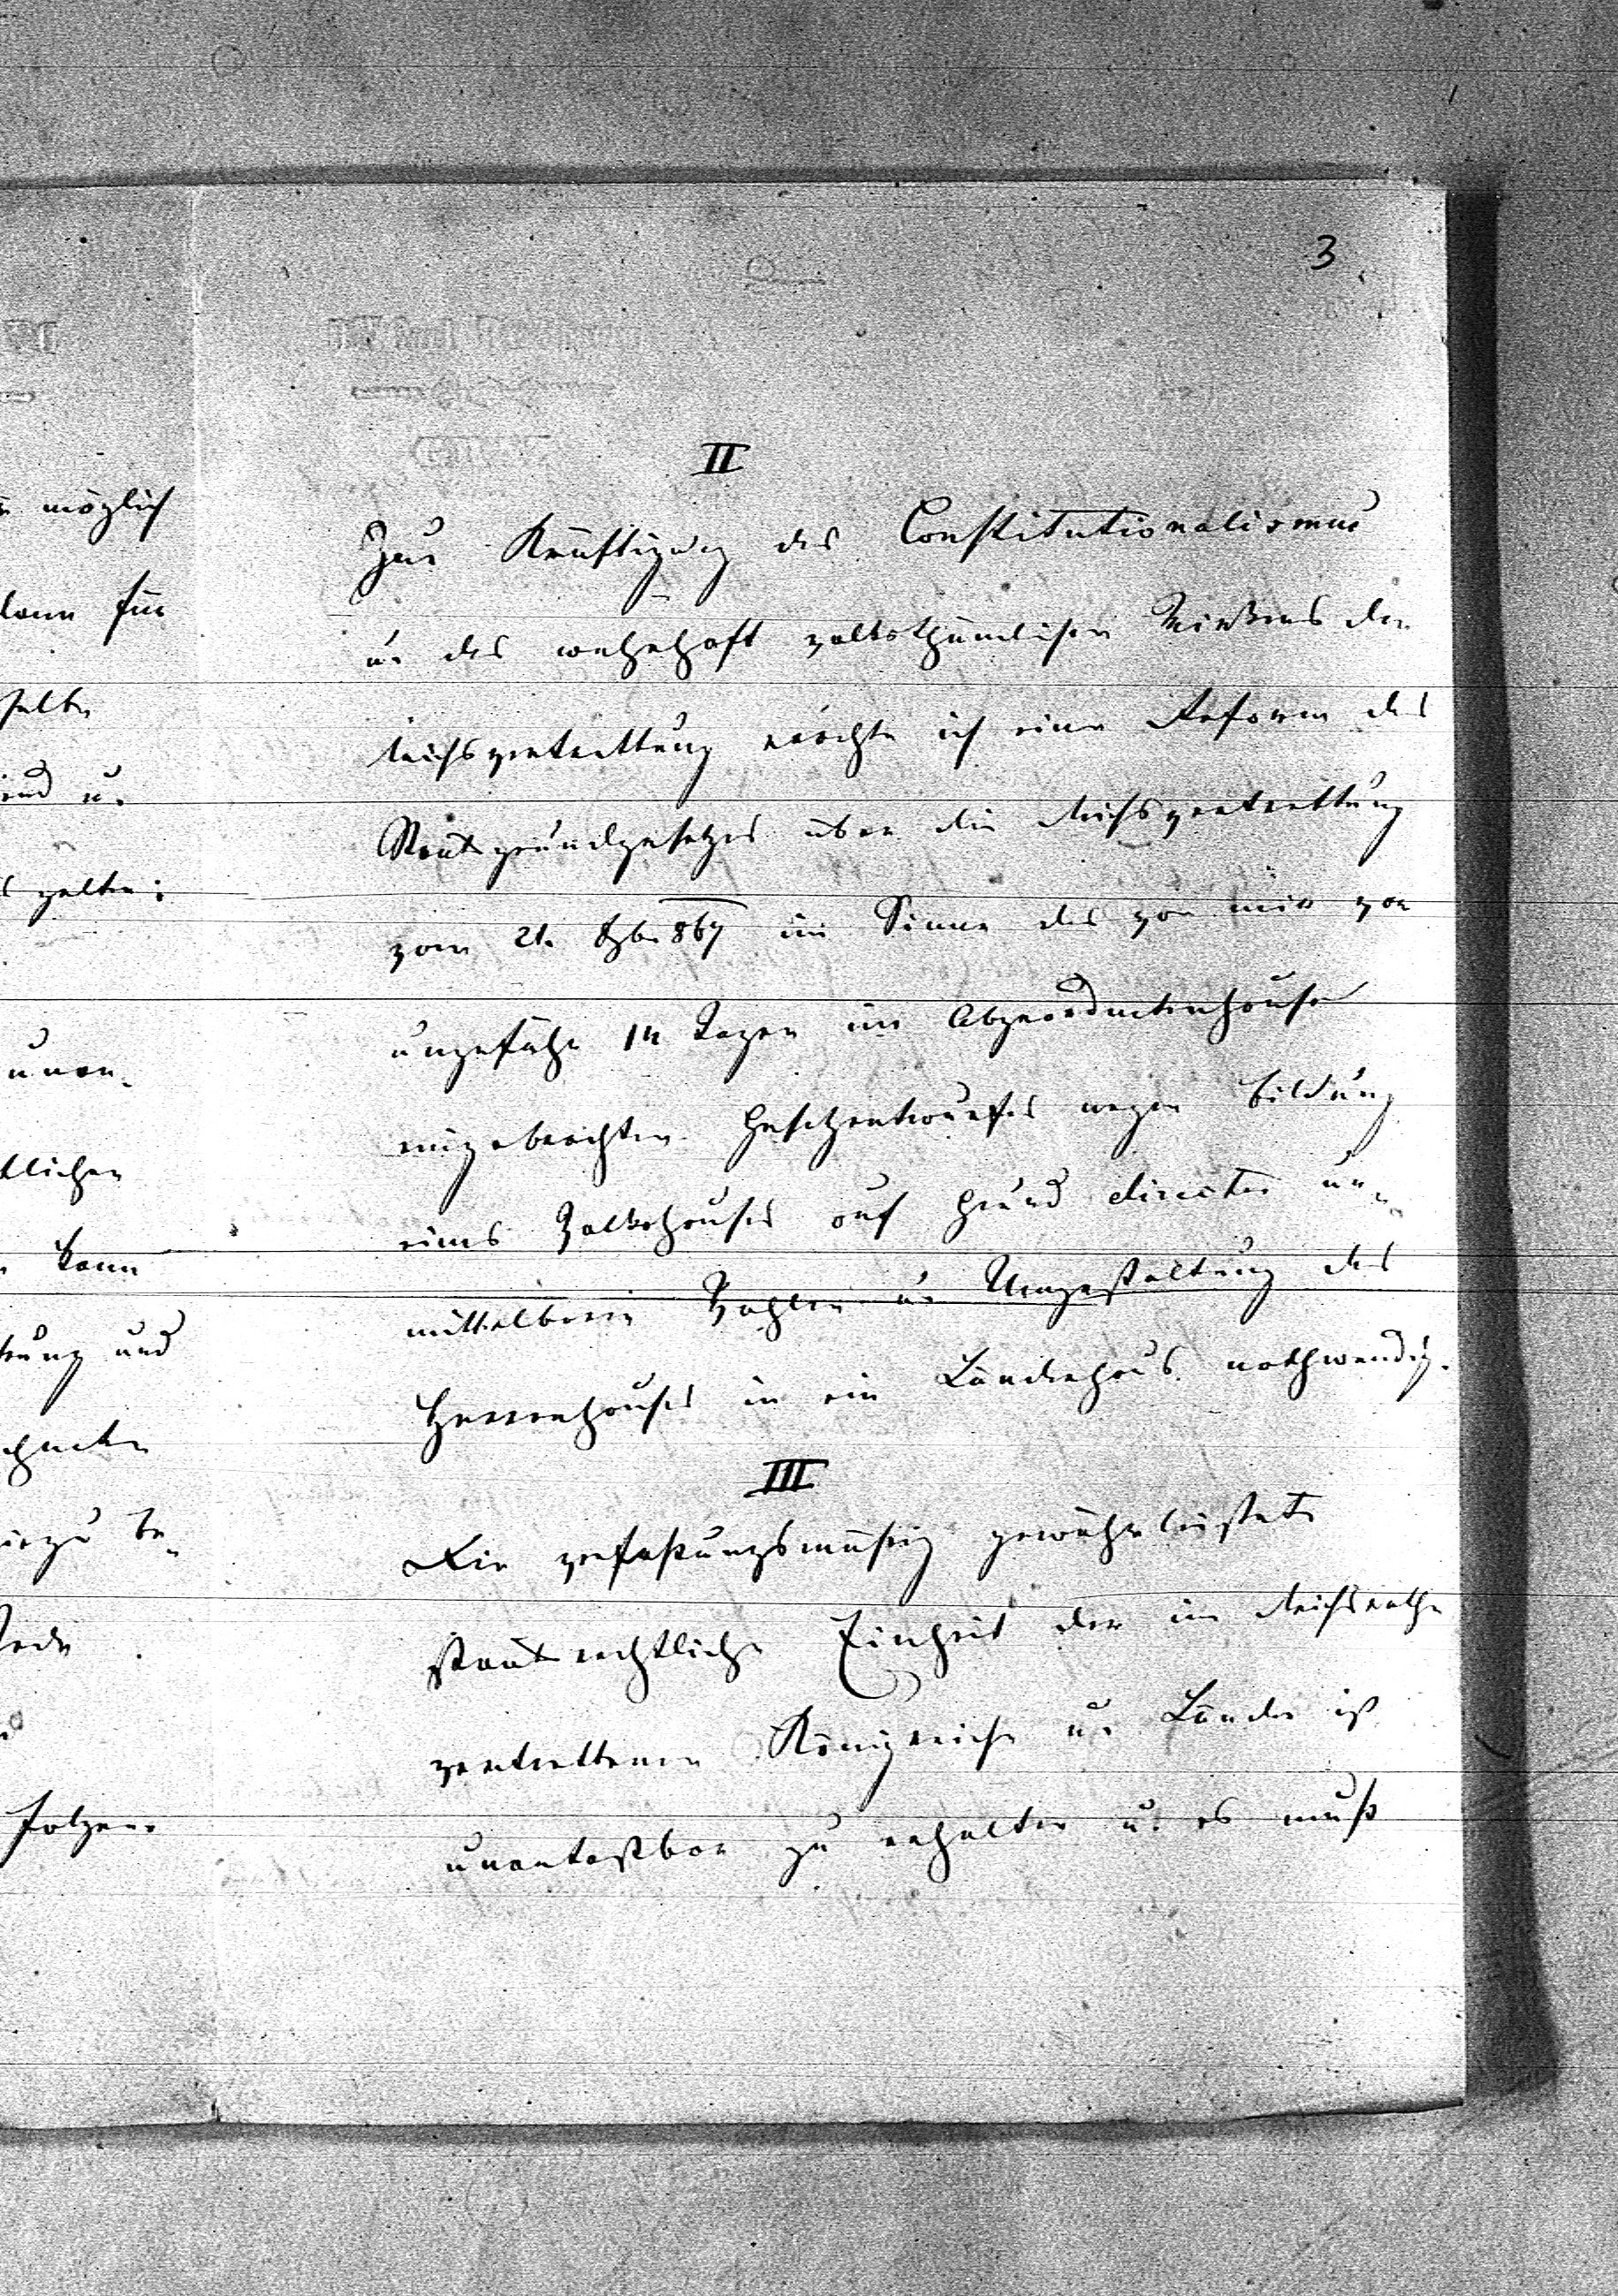 3
II
Zur Kräftigung des Constitutionalismus
u. des wahrhaft volksthümlichen Wirkens der
Reichsvertrettung möchte ich eine Reform des
Staatsgrundgesetzes über die Reichsvertrettung
vom 21. Dzb. 867 im Sinne des von mir vor
ungefähr 14 Tagen im Abgeordnetenhause
eingebrachten Gesetzentwurfes wegen Bildung
eines Volkshauses auf Grund directer un-
mittelbarer Wahlen u. Umgestaltung des
Herrenhauses in ein Länderhaus nothwendig.
III
Die verfaßungsmäßig gewährleistete
staatsrechtliche Einheit der im Reichsrathe
vertrettenen Königreiche u. Länder ist
unantastbar zu erhalten u. es muß
möglich
kann für
selbe
sind u.
gelten:
tlichen
kann
und
hiezu be-
Jede
folgen.